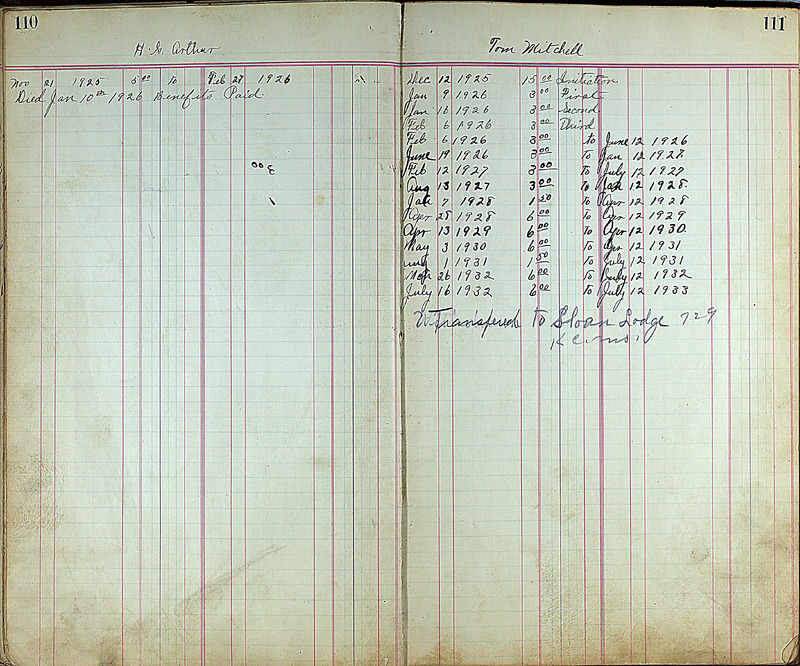 110
H. G. Arthur
Nov 21 1925 5 00 to Feb 27 1926
Died Jan 10th 1926 Benefits Paid
3 00
1
111
Tom Mitchell
Dec 12 1925 15 00 Initiation
Jan 9 1926 3 00 First
Jan 16 1926 3 00 Second
Feb 6 1926 3 00 Third
Feb 6 1926 3 00 to June 12 1926
June 19 1926 3 00 To Jan 12 1927
Feb 12 1927 3 00 To July 12 1927
Aug 13 1927 3 00 To Jan 12 1928
Jan 7 1928 1 50 To Apr 12 1928
Apr 28 1928 6 00 To Apr 12 1929
Apr 13 1929 6 00 To Apr 12 1930
May 3 1930 6 00 To Apr 12 1931
Aug 1 1931 1 50 To July 12 1931
Mar 26 1932 6 00 To July 12 1932
July 16 1932 6 00 To July 12 1933
Transfered to Sloan Lodge 729
K.C. Mo.